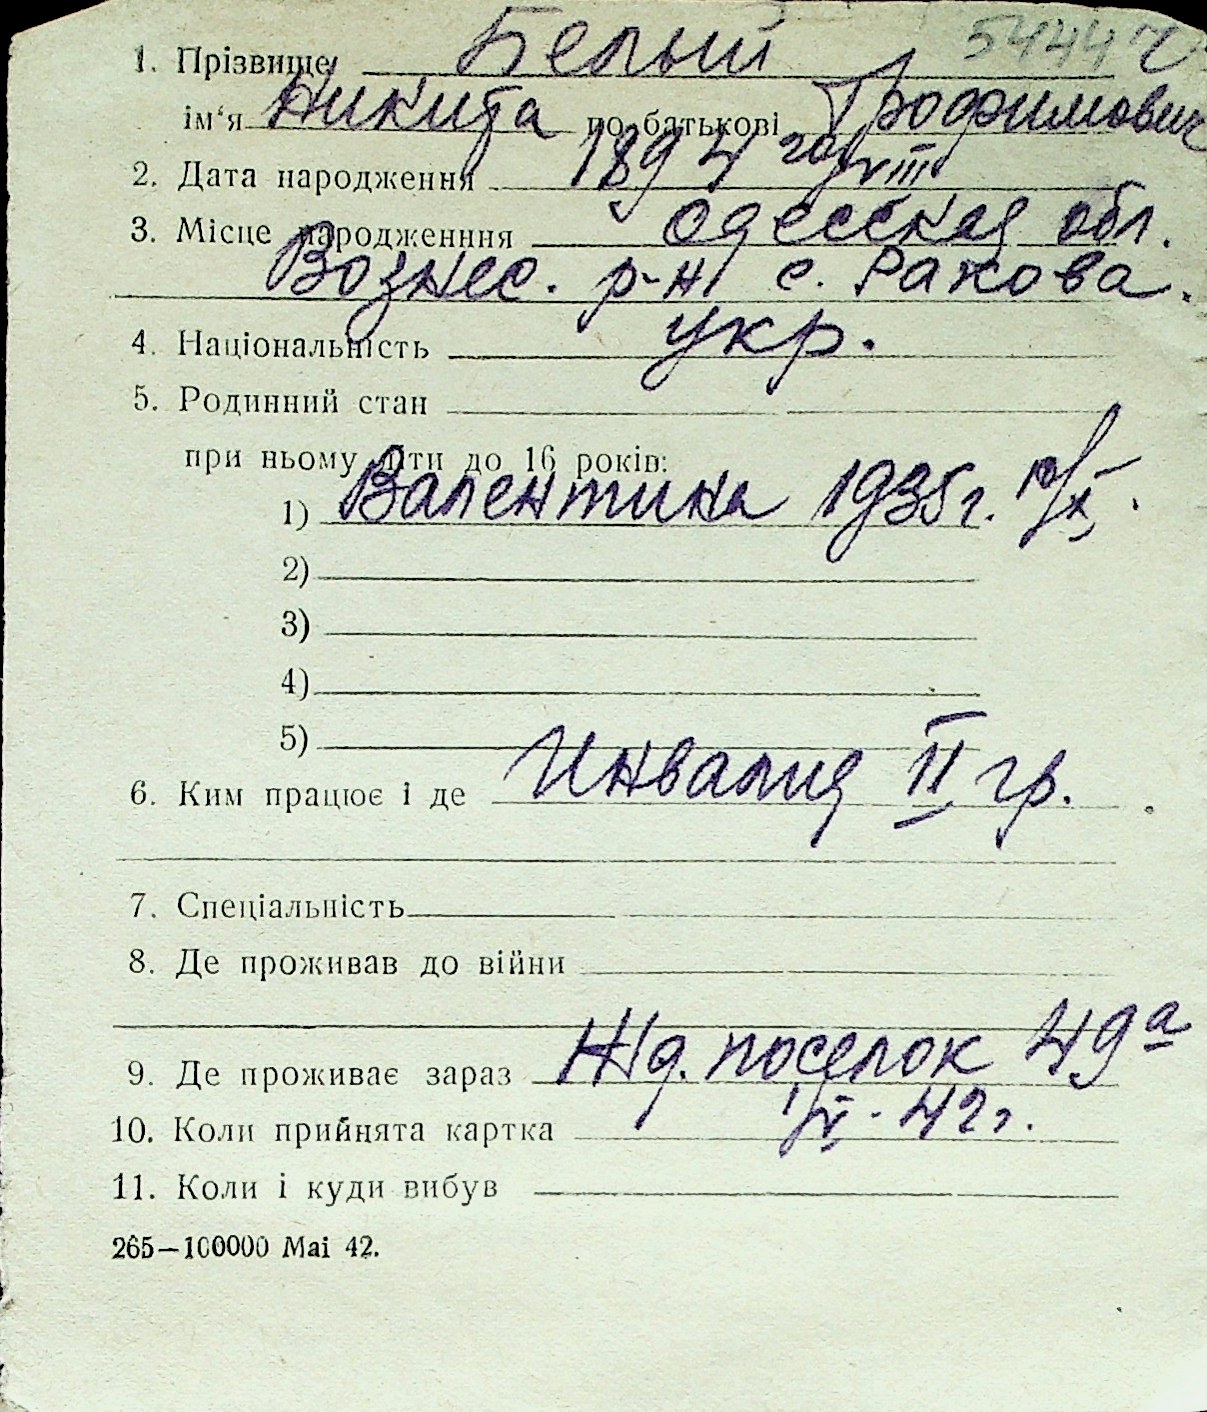 54447
1. Прізвище Белый
ім‘я Никита по батькові Трофимович
2. Дата народження 1894 году VIII
3. Місце народженння Одесская обл.
Вознес. р-н с. Ракова.
4. Національність укр.
5. Родинний стан
при ньому діти до 16 років:
1) Валентина 1935 г. 10/X.
2)
3)
4)
5)
6. Ким працює і де Инвалид II гр.
7. Спеціальність
8. Де проживав до війни
9. Де проживає зараз Жд. поселок 49а
10. Коли прийнята картка 1/V. 42 г.
11. Коли і куди вибув
265—100000 Mai 42.